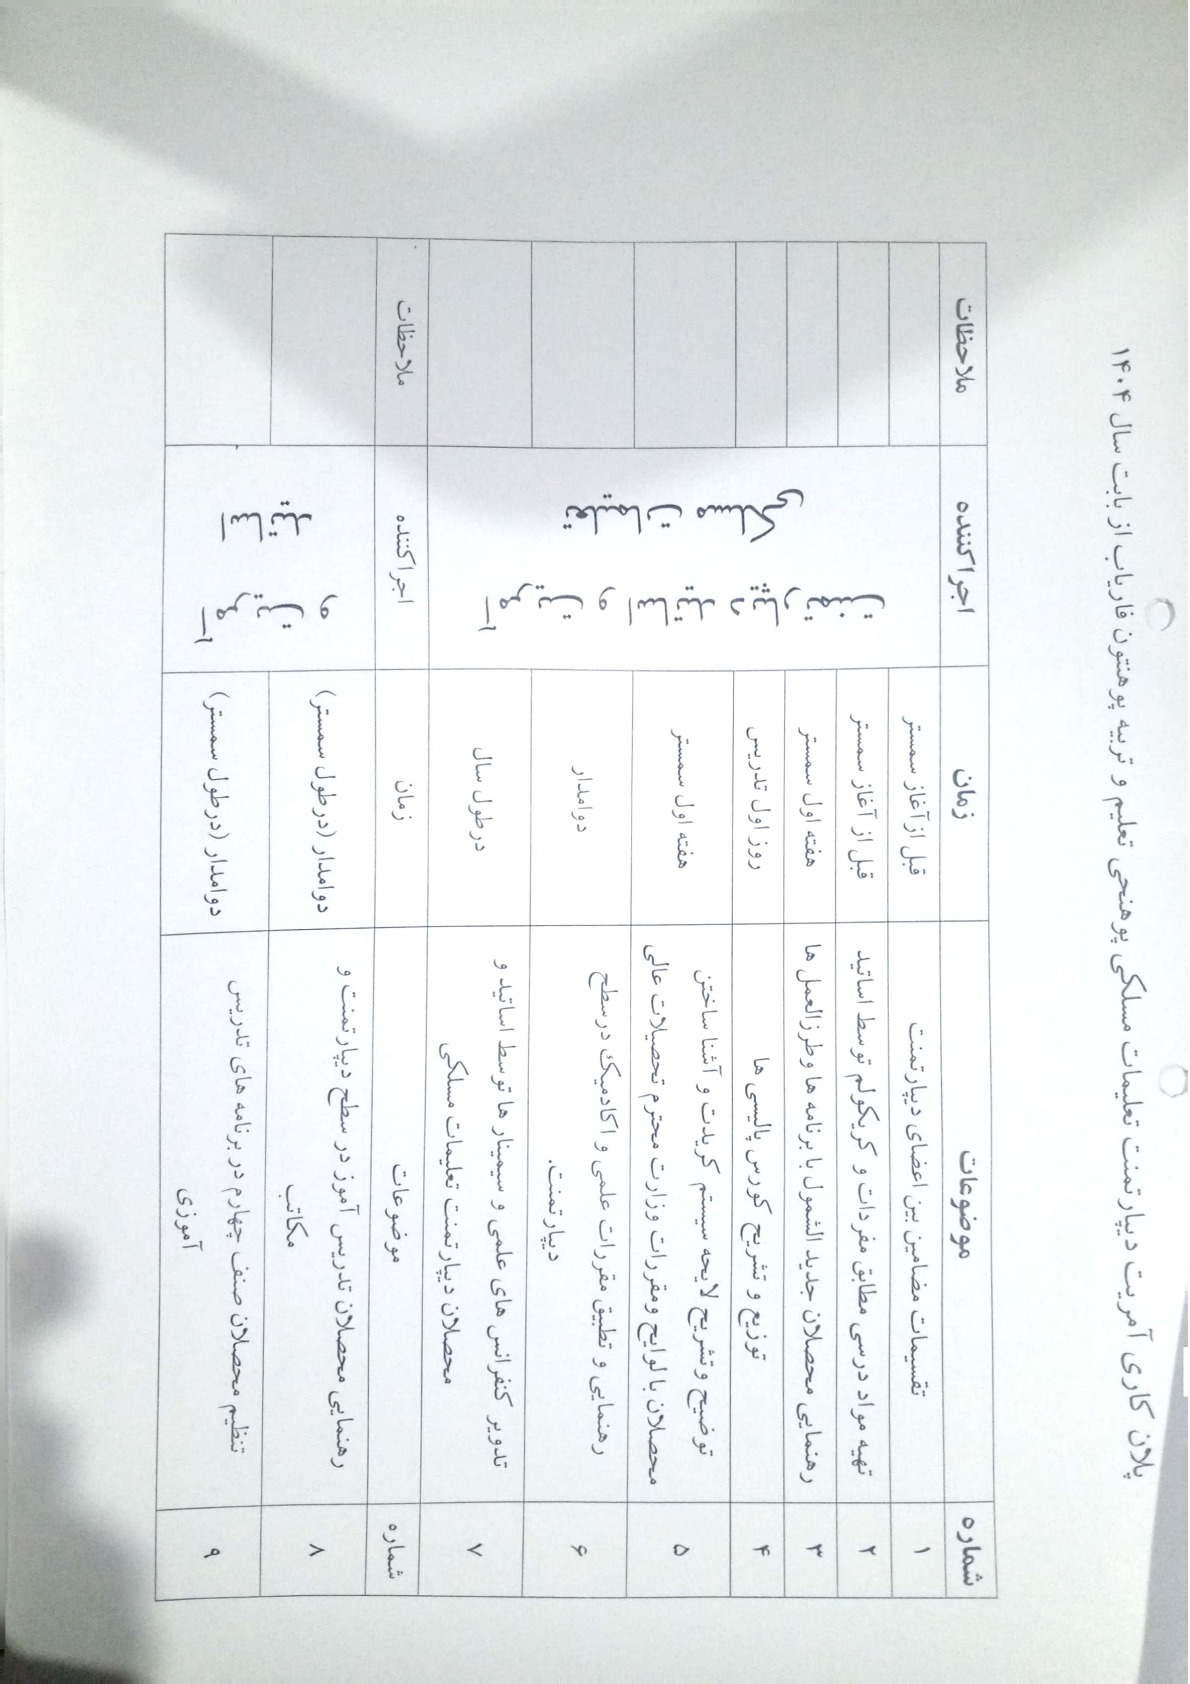 پلان کاری آمریت دیپارتمنت تعلیمات مسلکی پوهنحی تعلیم و تربیه پوهنتون فاریاب از بابت سال ۱۴۰۴
شماره موضوعات زمان اجراکننده ملاحظات
۱ تقسیمات مضامین بین اعضای دیپارتمنت قبل ازآغاز سمستر
۲ تهیه مواد درسی مطابق مفردات و کریکولم توسط اساتید قبل از آغاز سمستر
۳ رهنمایی محصلان جدید الشمول با برنامه ها وطرزالعمل ها هفته اول سمستر
۴ توزیع و تشریح کورس پالیسی ها روز اول تدریس
آمریت و اساتید دیپارتمنت
تعلیمات مسلکی
۵ توضیح وتشریح لایحه سیستم کریدت و آشنا ساختن
محصلان با لوایح ومقررات وزارت محترم تحصیلات عالی
هفته اول سمستر
۶ رهنمایی و تطبیق مقررات علمی و اکادمیک درسطح
دیپارتمنت.
دوامدار
۷ تدویر کنفرانس های علمی و سیمینار ها توسط اساتید و
محصلان دیپارتمنت تعلیمات مسلکی
درطول سال
شماره موضوعات زمان اجراکننده ملاحظات
۸ رهنمایی محصلان تدریس آموز در سطح دیپارتمنت و
مکاتب
دوامدار (درطول سمستر)
آمریت و
اساتید
۹ تنظیم محصلان صنف چهارم در برنامه های تدریس
آموزی
دوامدار (درطول سمستر)